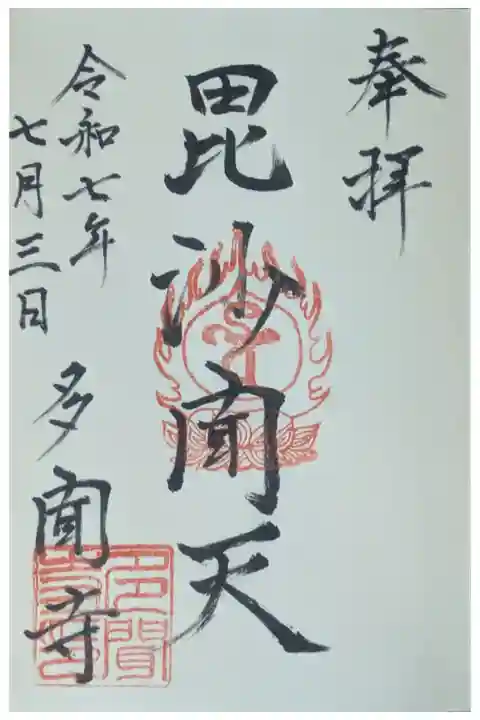 奉拝
毘沙聞天
令和七年
七月三日
多聞寺
多聞寺